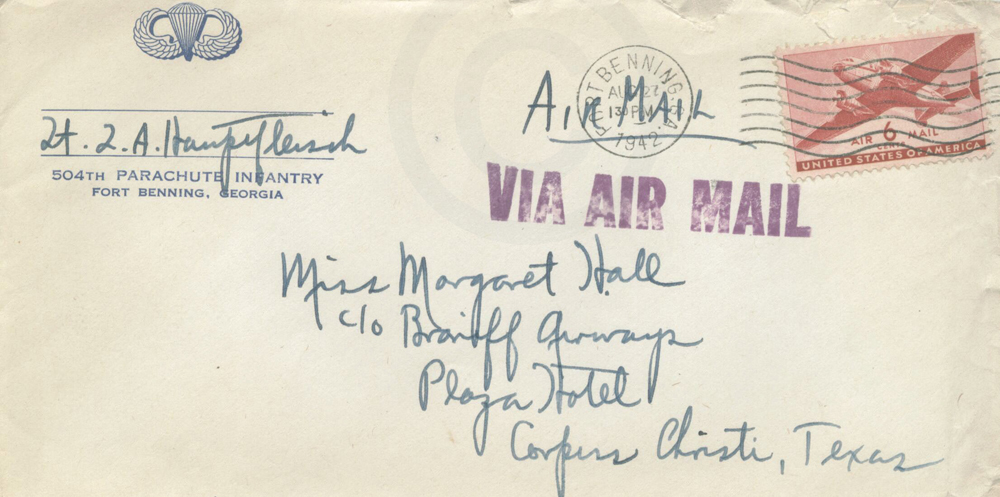 Lt. L.A. Hauptfleisch
504TH PARACHUTE INFANTRY
FORT BENNING, GEORGIA
Air Mail
FORT BENNING, GA.
AUG 27
130 PM
1942
AIR 6 MAIL
CENTS
UNITED STATES OF AMERICA
VIA AIR MAIL
Miss Margaret Hall
c/o Braniff Airways
Plaza Hotel
Corpus Christi, Texas